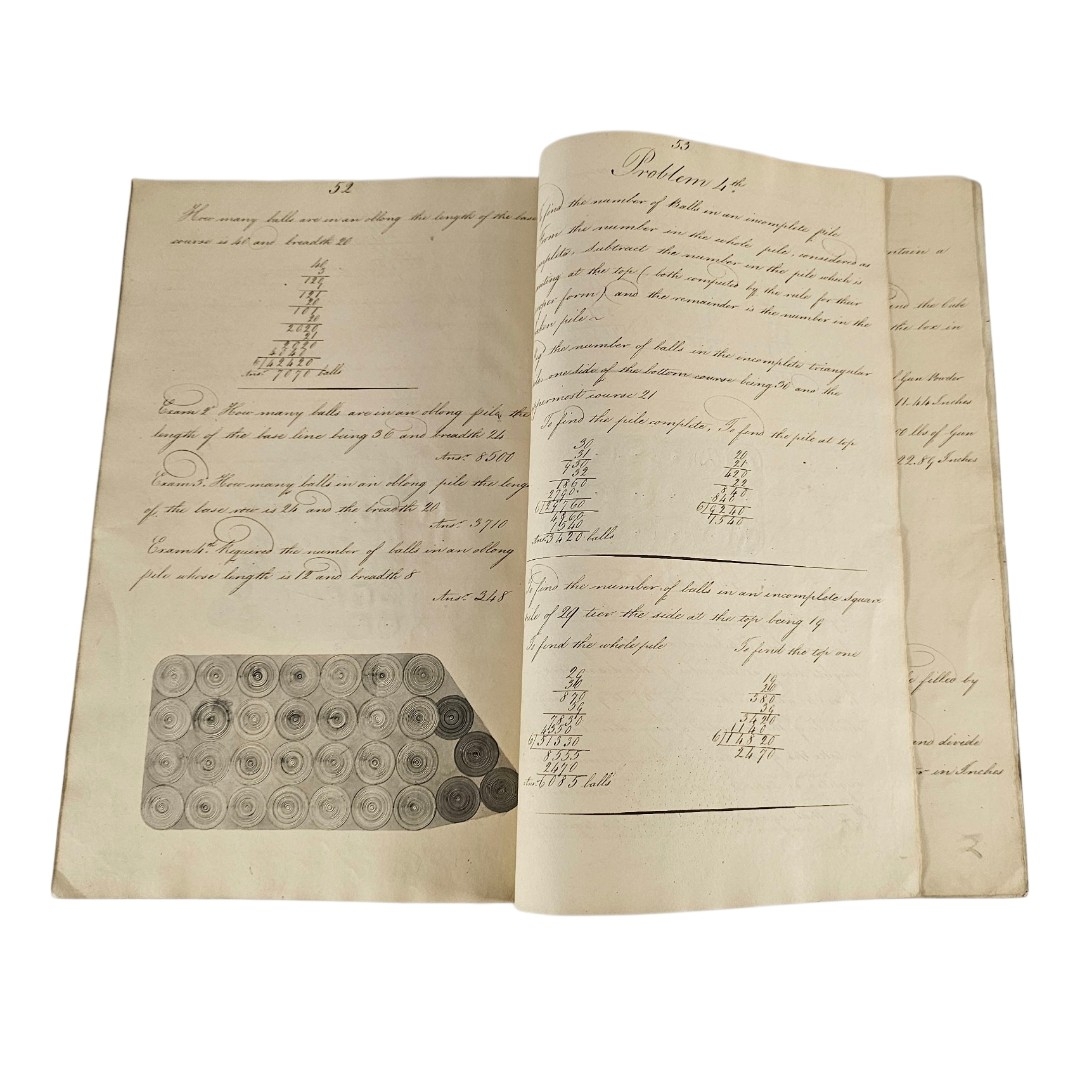 52
How many balls are in an oblong the length of the base
course is 40 and breadth 20
40
3
120
1
121
20
101
20
2020
21
2020
4040
6)42420
Ans. 7070 balls
Exam 2d How many balls are in an oblong pile the
length of the base line being 36 and breadth 24
Ans. 8500
Exam 3. How many balls in an oblong pile the leng
of the base row is 25 and the breadth 20
Ans. 3710
Exam 4th Required the number of balls in an oblong
pile whose length is 12 and breadth 8
Ans. 348
53
Problem 4th
find the number of Balls in an incomplete pile
From the number in the whole pile, considered as
mplete, subtract the number in the pile which is
anting at the top (both computed by the rule for their
oper form) and the remainder is the number in the
oken pile
the number of balls in the incomplete triangular
one side of the bottom course being 30 and the
ppermost course 21
To find the pile complete, To find the pile at top
30
31
930
32
1860
2790
6)29760
4960
1540
Ans. 3420 balls
20
21
420
22
840
840
6)9240
1540
To find the number of balls in an incomplete square
pile of 29 tier the side at the top being 19
To find the whole pile
To find the top one
29
30
870
59
7830
4350
6)51330
8555
2470
Ans. 6085 balls
19
20
380
39
3420
1140
6)14820
2470
ntain a
and the Cube
the box in
Gun Powder
11.44 Inches
lbs of Gun
22.89 Inches
filled by
and divide
in Inches